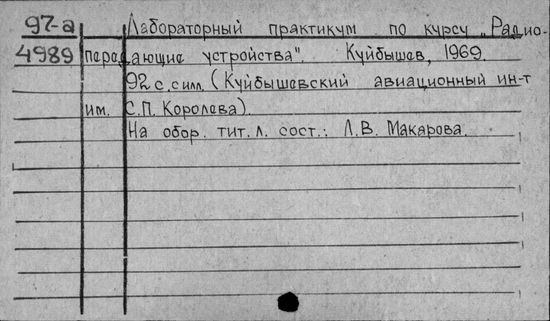 97-а Лабораторный практикум по курсу „Радио-
4989 передающие устройства". Куйбышев, 1969.
92 с. с илл. (Куйбышевский авиационный ин-т
им. С.П. Королева).
На обор. тит. л. сост.: Л.В. Макарова.